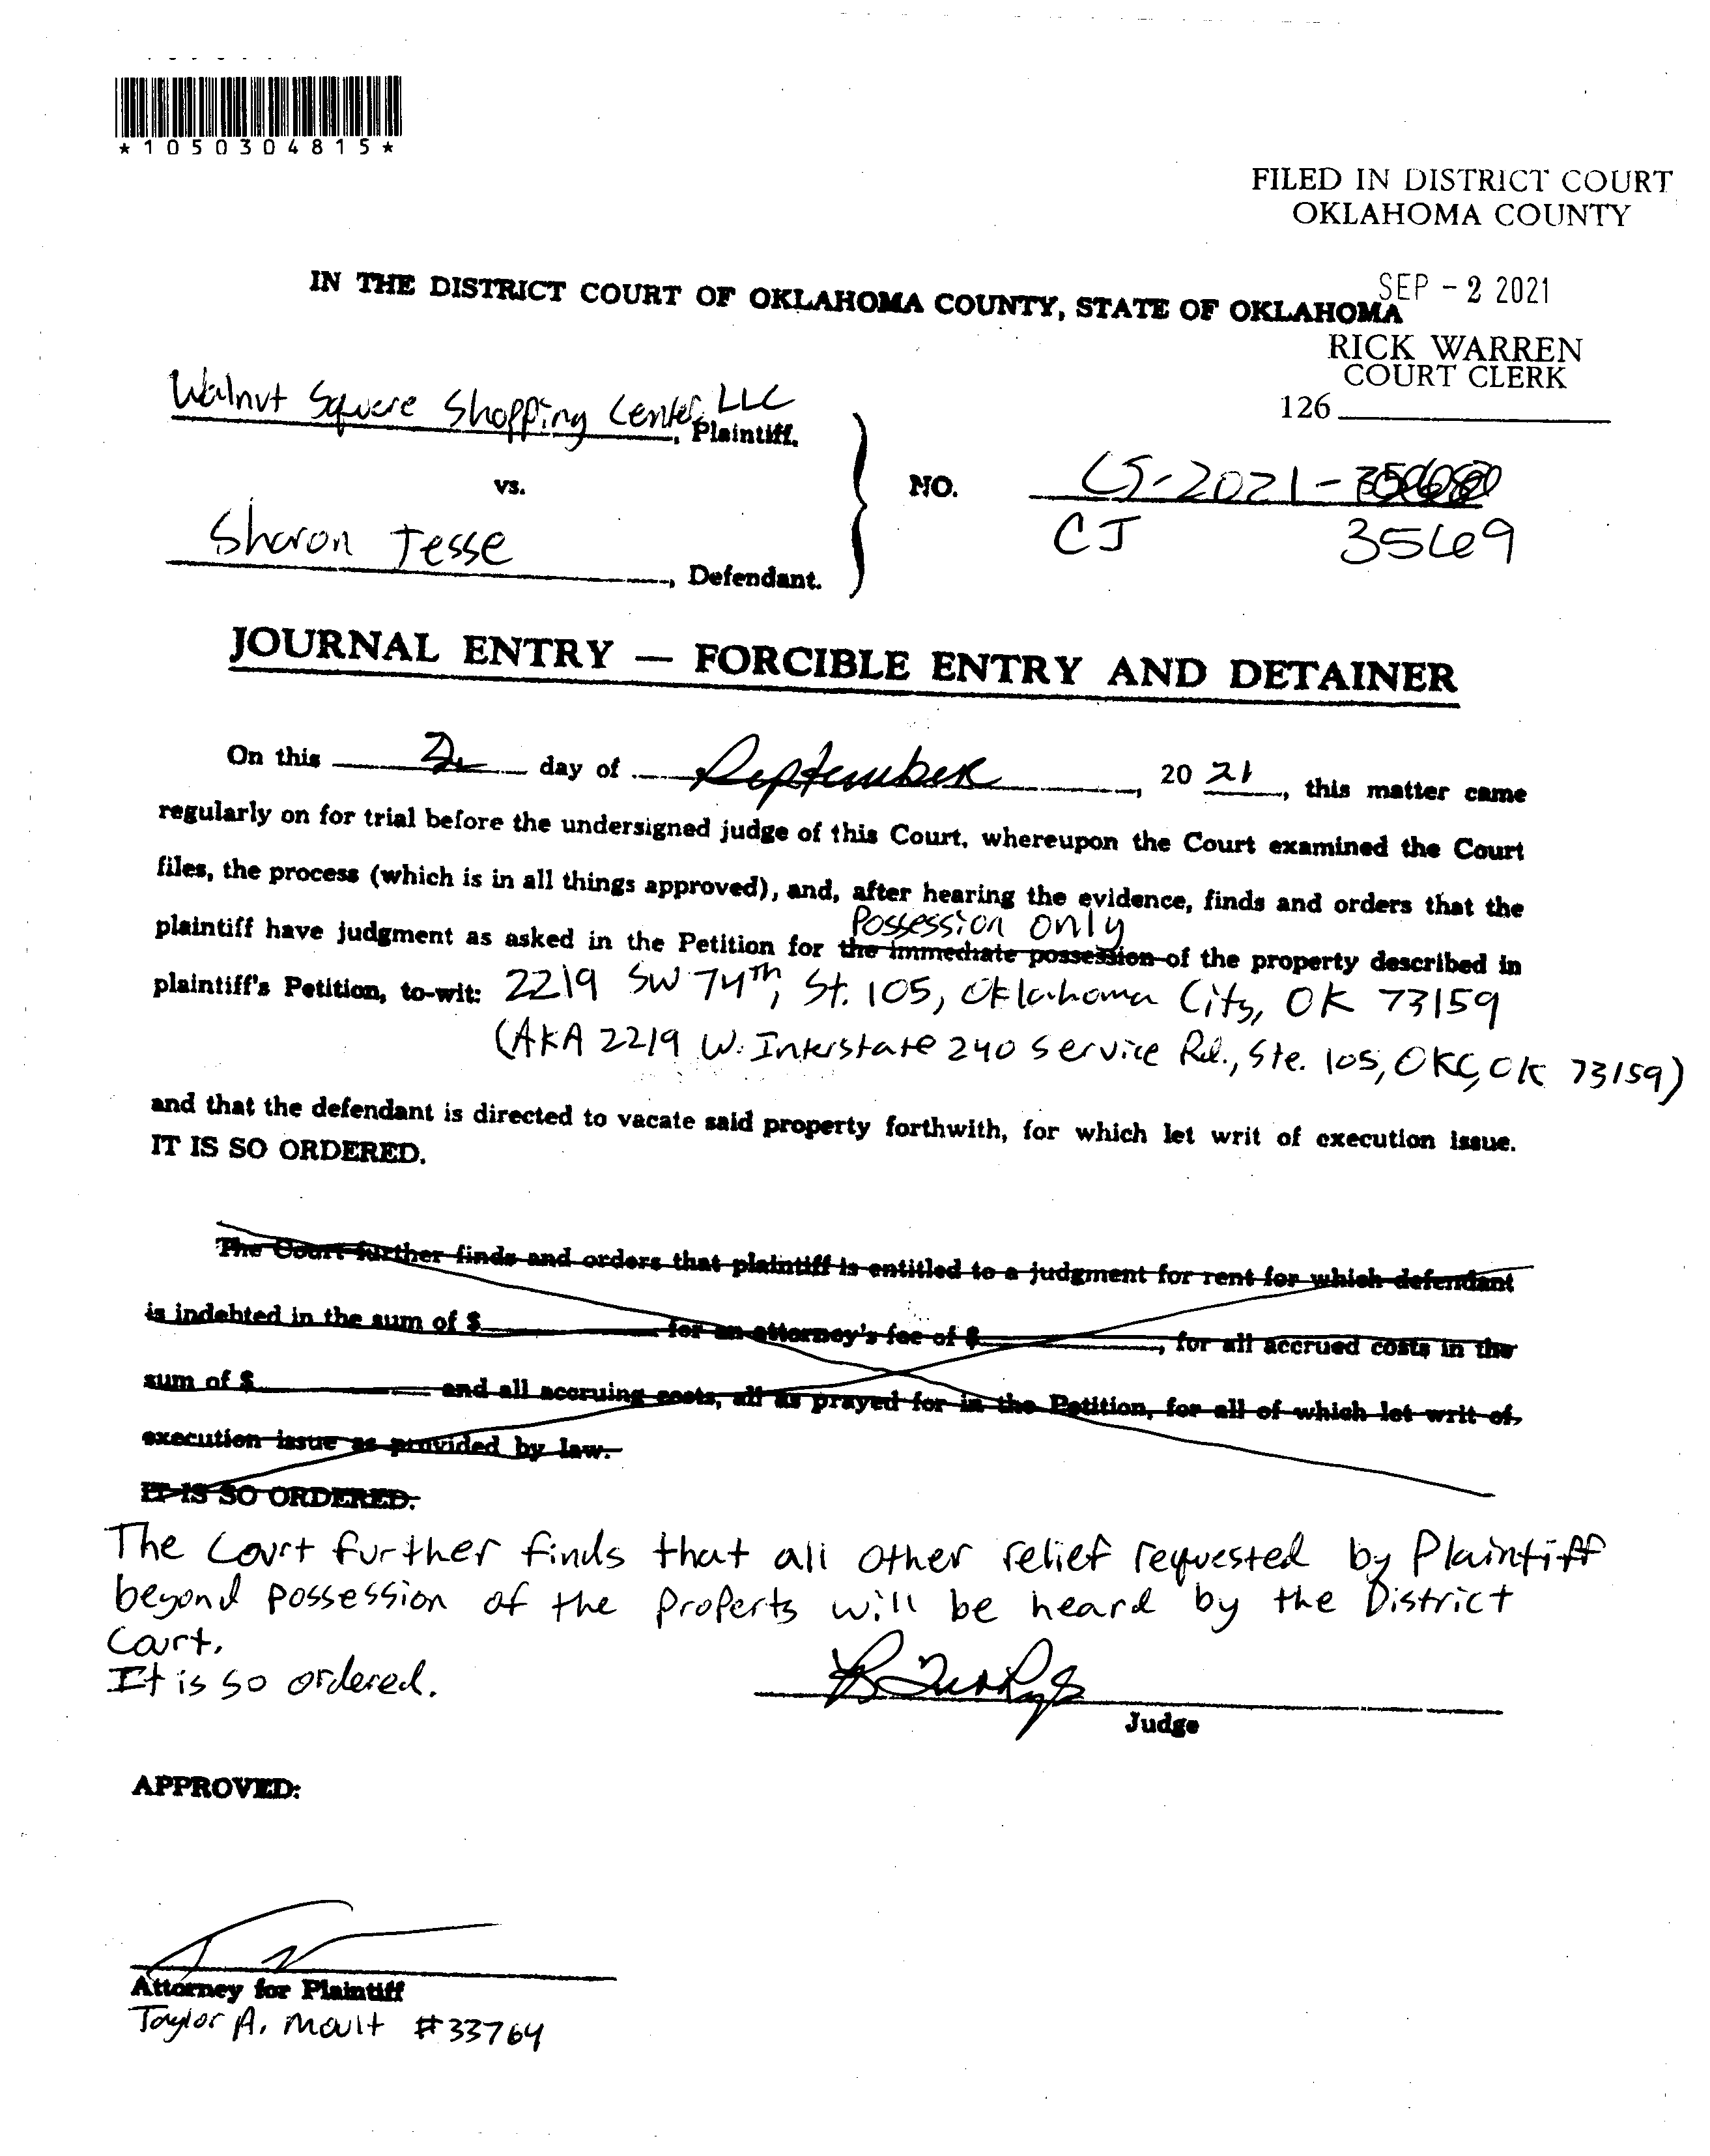 *1050304815*
FILED IN DISTRICT COURT
OKLAHOMA COUNTY
SEP - 2 2021
IN THE DISTRICT COURT OF OKLAHOMA COUNTY, STATE OF OKLAHOMA
RICK WARREN
COURT CLERK
126
Walnut Square Shopping Center, LLC
, Plaintiff.
vs.
NO. CS-2021-
CJ 3569
Sharon Tesse
, Defendant.
JOURNAL ENTRY — FORCIBLE ENTRY AND DETAINER
On this 2 day of September, 20 21, this matter came
regularly on for trial before the undersigned judge of this Court, whereupon the Court examined the Court
files, the process (which is in all things approved), and, after hearing the evidence, finds and orders that the
Possession only
plaintiff have judgment as asked in the Petition for the immediate possession of the property described in
plaintiff's Petition, to-wit: 2219 SW 74th, St. 105, Oklahoma City, OK 73159
(AKA 2219 W. Interstate 240 Service Rd., Ste. 105, OKC, OK 73159)
and that the defendant is directed to vacate said property forthwith, for which let writ of execution issue.
IT IS SO ORDERED.
The Court further finds and orders that plaintiff is entitled to a judgment for rent for which defendant
is indebted in the sum of $ for an attorney's fee of $ , for all accrued costs in the
sum of $ and all accruing costs, all as prayed for in the Petition, for all of which let writ of
execution issue as provided by law.
IT IS SO ORDERED.
The Court further finds that all other relief requested by Plaintiff
beyond possession of the Property will be heard by the District
Court.
It is so ordered.
Judge
APPROVED:
Attorney for Plaintiff
Taylor A. Moult #33764